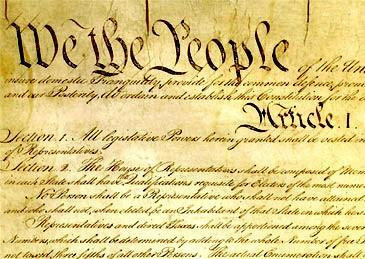 We the People of the Uni
insure domestic Tranquility, provide for the common defence, prom
and our Posterity, do ordain and establish this Constitution for the
Article. I
Section. 1. All legislative Powers herein granted shall be vested in
of Representatives.
Section. 2. The House of Representatives shall be composed of Mem
in each State shall have the Qualifications requisite for Electors of the most nume
No Person shall be a Representative who shall not have attained
and who shall not, when elected, be an Inhabitant of that State in which he
Representatives and direct Taxes shall be apportioned among the seve
Numbers, which shall be determined by adding to the whole Number of free
not taxed, three fifths of all other Persons. The actual Enumeration shall